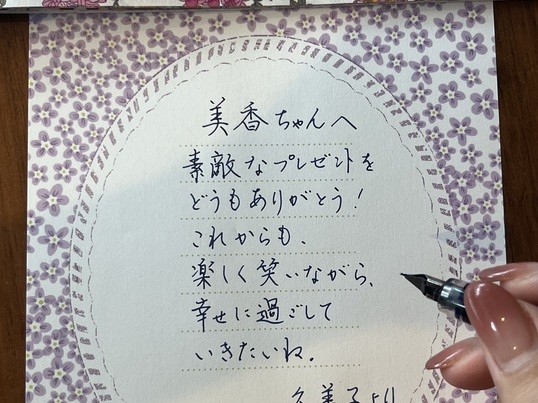 美香ちゃんへ
素敵なプレゼントを
どうもありがとう!
これからも、
楽しく笑いながら、
幸せに過ごして
いきたいね。
久美子より